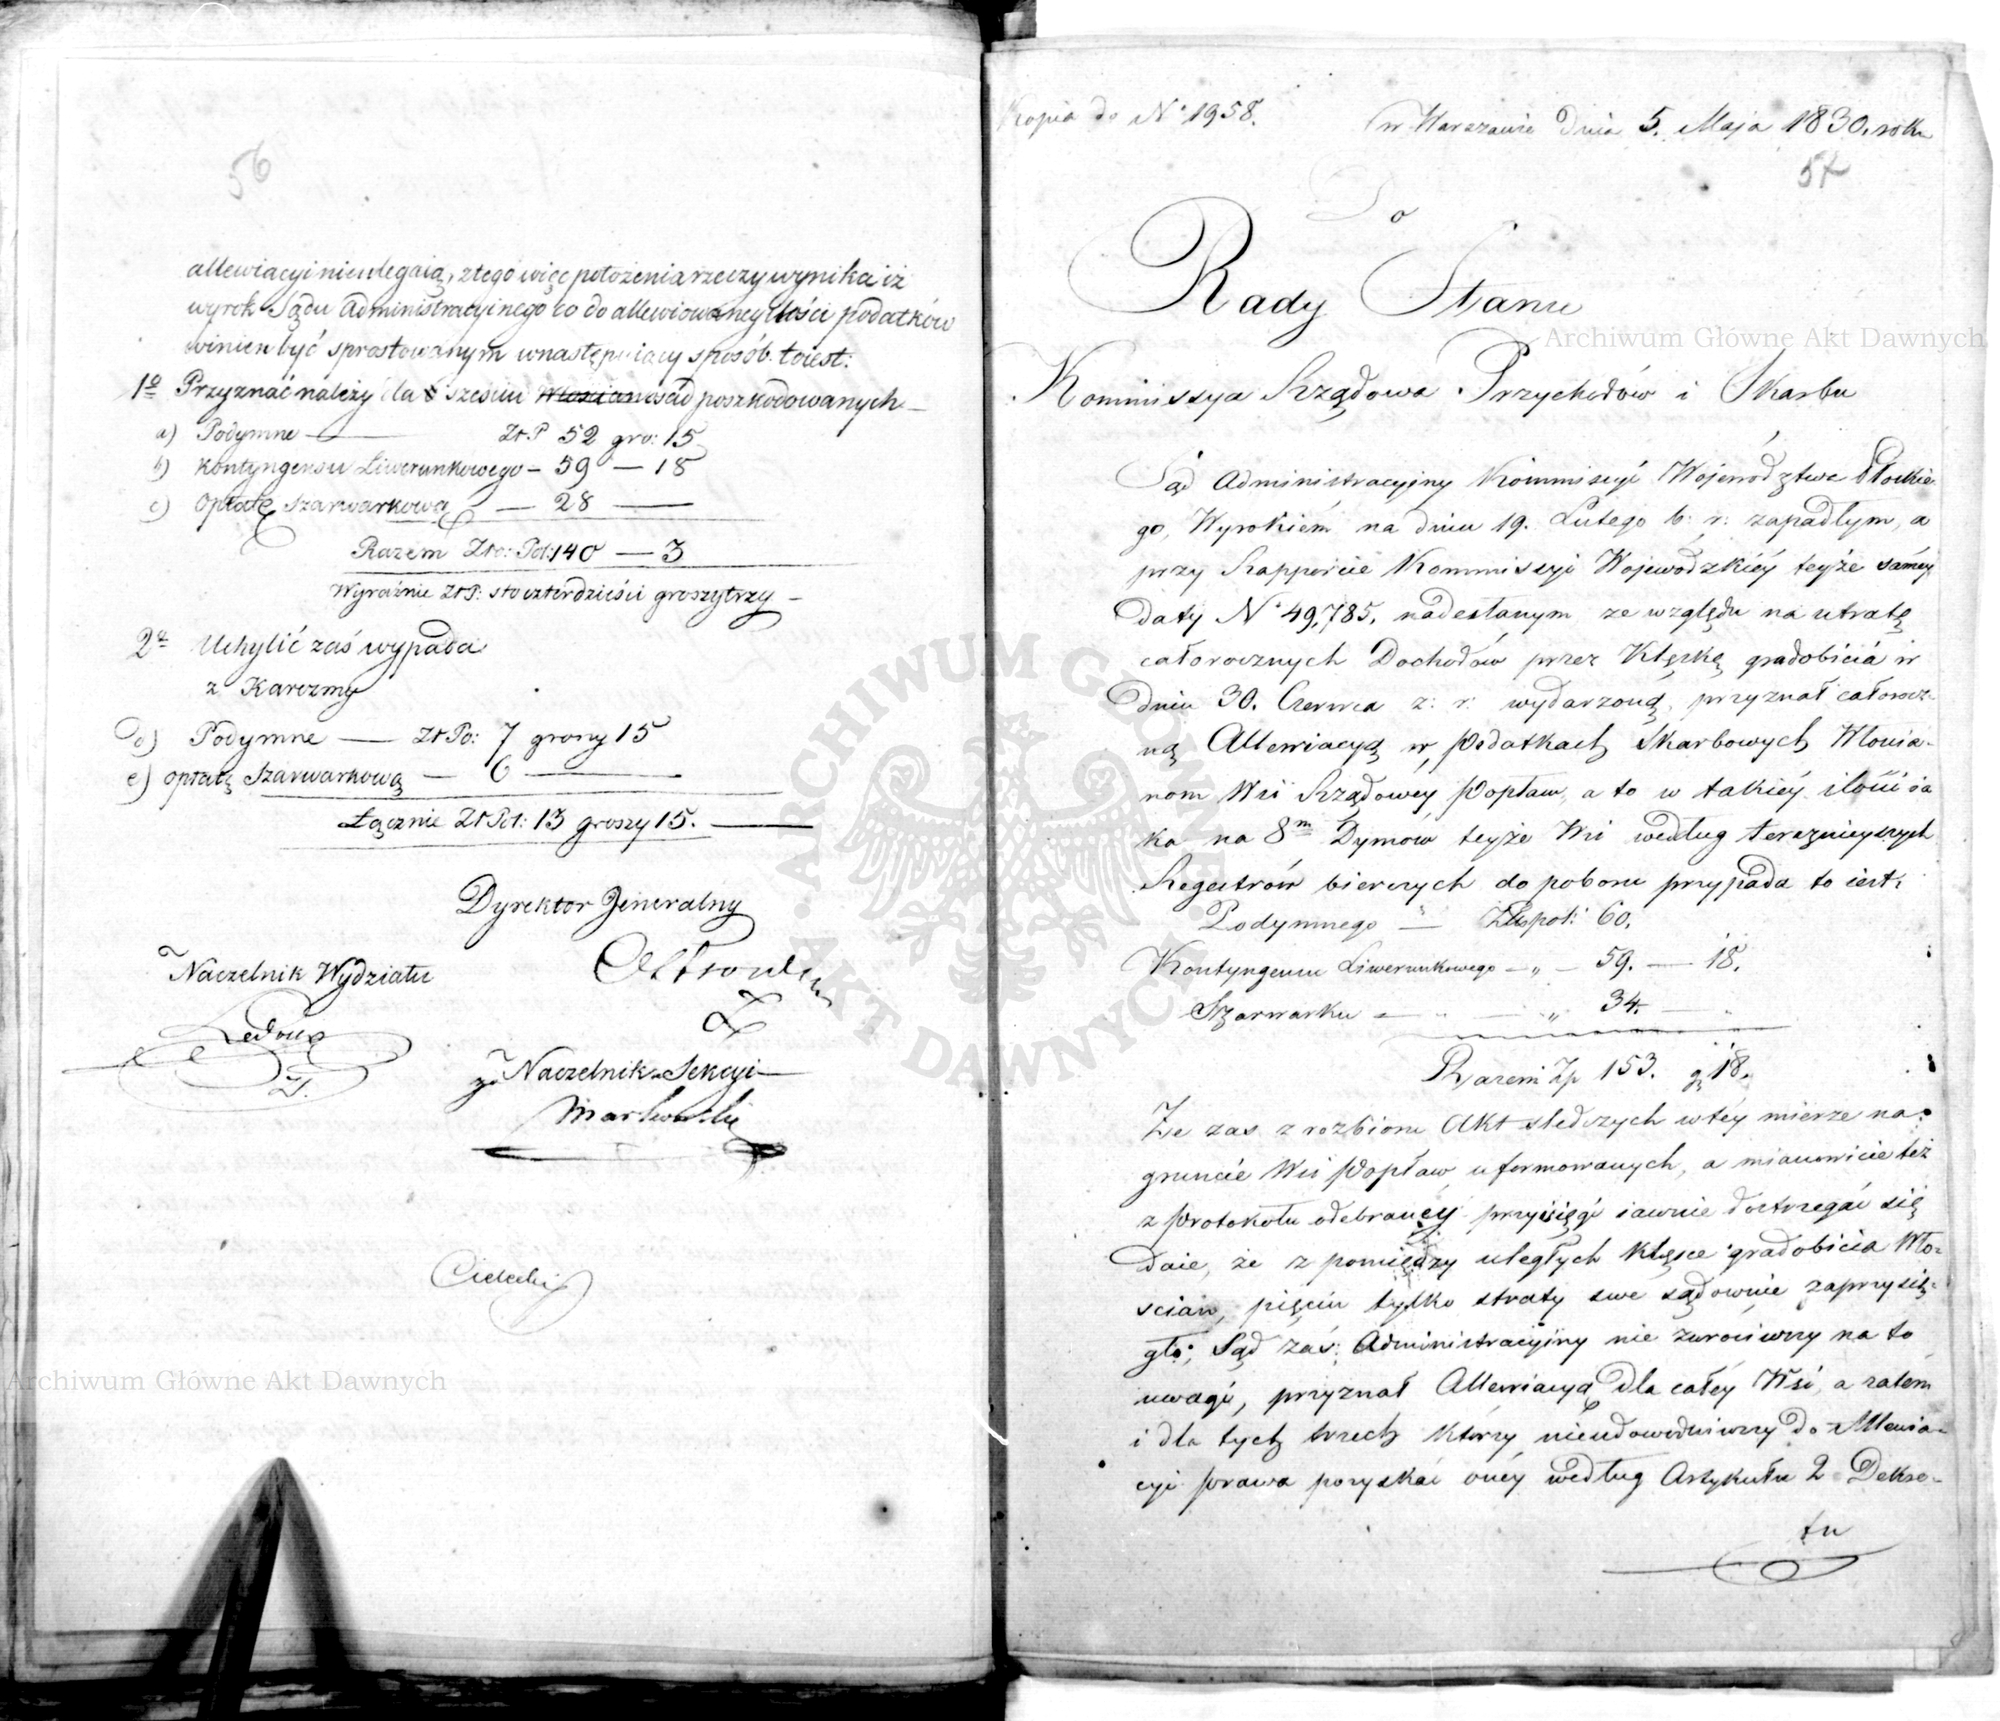 56
allewiacyi nieulegaią, z tego więc położenia rzeczy wynika iż
wyrok Sądu Administracyinego co do allewiowaney ilości podatków
winien być sprostowanym w następuiący sposób. toiest:
1o Przyznać należy dla sześciu Włościan osad poszkodowanych —
a) Podymne — Zł.P 52 gro: 15
b) Kontyngensu Liwerunkowego — 59 — 18
c) Opłatę Szarwarkową — 28 —
Razem Złо: Pol: 140 — 3
Wyraźnie Zł P: sto czterdzieści groszy trzy —
2o Uchylić zaś wypada
z Karczmy
d) Podymne — Zł Po: 7 groszy 15
e) opłatę Szarwarkową — 6 —
Łącznie Zł Pol: 13 groszy 15. —
Dyrektor Jeneralny
Naczelnik Wydziału
Ledoux
z. Naczelnik Sekcyi
Markowski
Cielecki
Kopia do No 1958. w Warszawie dnia 5. Maja 1830. roku
57
Do
Rady Stanu
Kommissya Rządowa Przychodów i Skarbu
Sąd Administracyjny Kommissyi Województwa Płockie-
go, Wyrokiém na dniu 19. Lutego b: r: zapadłym, a
przy Rapporcie Kommissyi Wojewódzkiéy teyże saméy
daty No 49,785. nadesłanym ze względu na utratę
całorocznych Dochodów przez Klęskę gradobicia w
dniu 30. Czerwca z: r: wydarzoną, przyznał całorocz-
ną Allewiacyą w Podatkach Skarbowych Włościa-
nom Wsi Rządowéy Popław, a to w takiéy ilości ia
ka na 8m Dymów teyże Wsi według teraznieyszych
Regestrów bierczych do poboru przypada to iest:
Podymnego — Złlpol: 60.
Kontyngensu Liwerunkowego — „ — 59. — 18.
Szarwarku — „ 34. —
Razem Zp 153. g 18.
Ze zas z rozbioru Akt sledczych w téy mierze na
gruncie Wsi Popław uformowanych, a mianowicie też
z Protokołu odebranéy przysięgi iawnie dostrzegać się
daie, że z pomiędzy uległych klęsce gradobicia Wło-
scian, pięciu tylko straty swe sądownie zaprzysię-
gło; Sąd zaś Administracyjny nie zwrociwszy na to
uwagi, przyznał Allewiacyą dla całéy Wsi, a zatém
i dla tych trzech którzy nieudowodniwszy do Allewia-
cyi prawa pozyskać onéy według Artykułu 2 Dekre-
tu
Archiwum Główne Akt Dawnych
Archiwum Główne Akt Dawnych
ARCHIWUM GŁÓWNE
AKT DAWNYCH